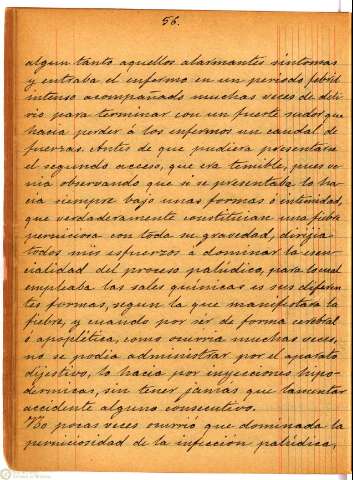 56.
algun tanto aquellos alarmantes sintomas
y entraba el enfermo en un periodo febril
intenso acompañado muchas veces de deli-
rio para terminar con un fuerte sudor que
hacia perder á los enfermos un caudal de
fuerzas. Antes de que pudiera presentarse
el segundo acceso, que era temible, pues ve-
nia observando que si se presentaba lo ha-
cia siempre bajo unas formas é intensidad,
que verdaderamente constituian una fiebre
perniciosa con toda su gravedad, dirijia
todos mis esfuerzos á dominar la esen-
cialidad del proceso palúdico, para lo cual
empleaba las sales químicas en sus diferen-
tes formas, segun la que manifestara la
fiebre, y cuando por ser de forma cerebral
ó apoplética, como ocurria muchas veces,
no se podia administrar por el aparato
dijestivo, lo hacia por inyecciones hipo-
dérmicas, sin tener jamas que lamentar
accidente alguno consecutivo.
No pocas veces ocurrió que dominada la
perniciosidad de la infección palúdica,